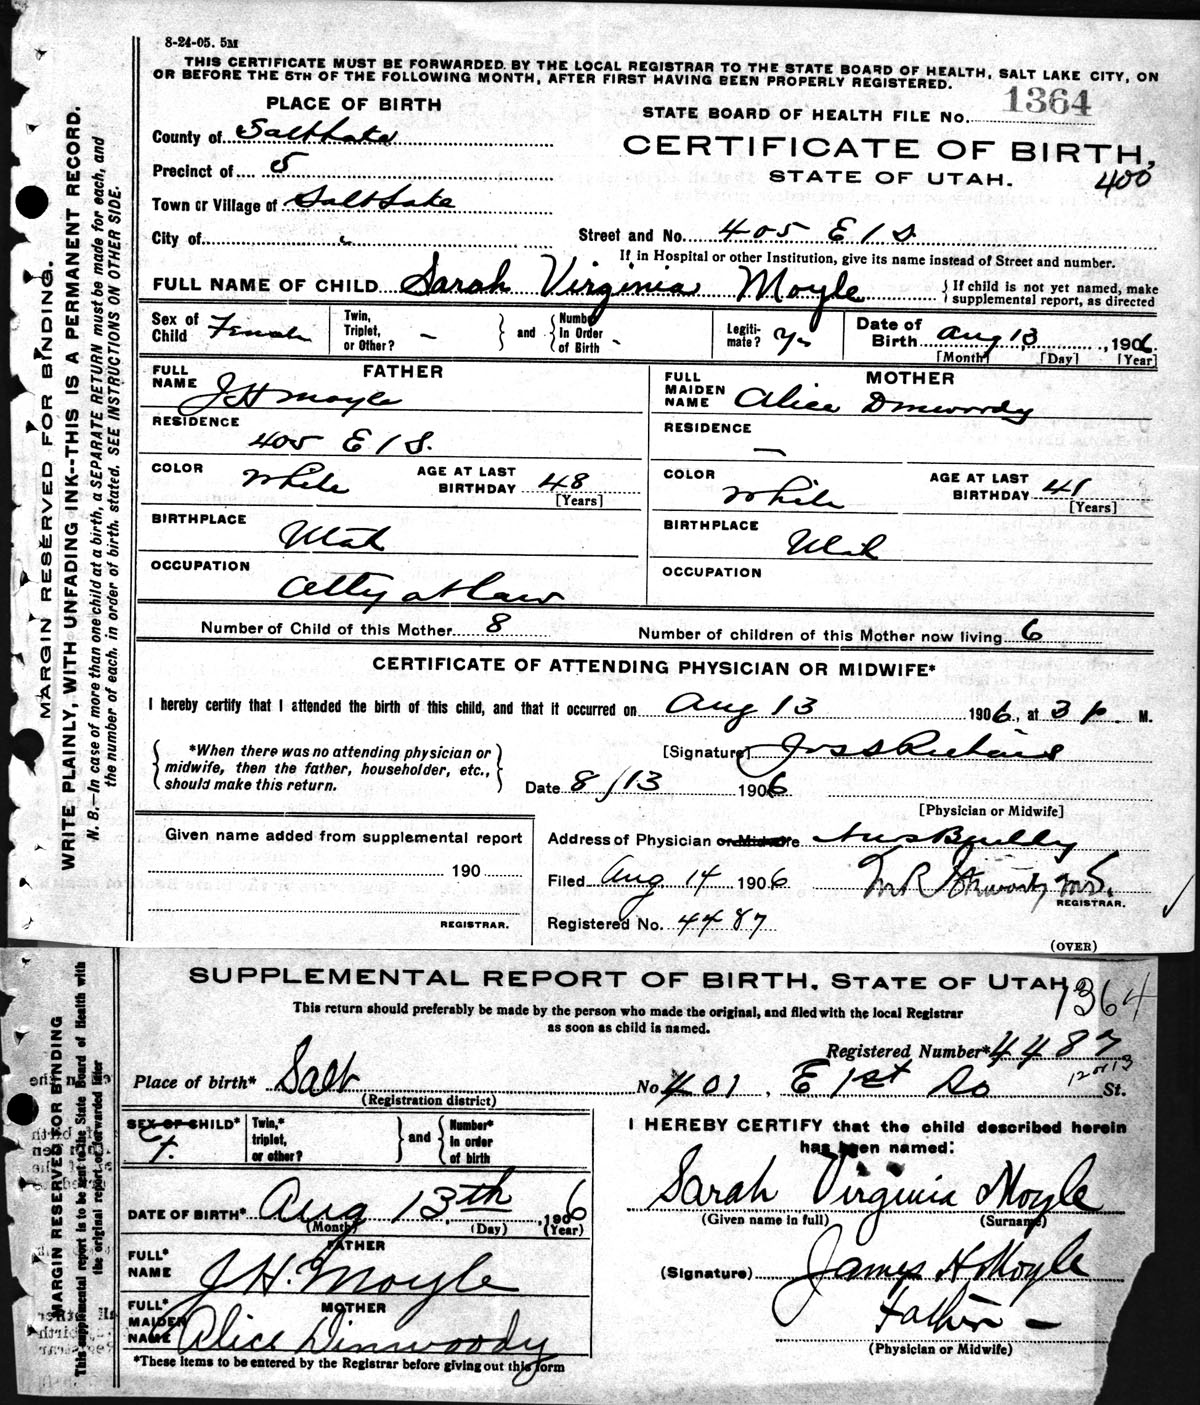 8-24-05. 5M
THIS CERTIFICATE MUST BE FORWARDED BY THE LOCAL REGISTRAR TO THE STATE BOARD OF HEALTH, SALT LAKE CITY, ON
OR BEFORE THE 5TH OF THE FOLLOWING MONTH, AFTER FIRST HAVING BEEN PROPERLY REGISTERED.
MARGIN RESERVED FOR BINDING.
WRITE PLAINLY, WITH UNFADING INK--THIS IS A PERMANENT RECORD.
N. B.—In case of more than one child at a birth, a SEPARATE RETURN must be made for each, and
the number of each, in order of birth, stated. SEE INSTRUCTIONS ON OTHER SIDE.
PLACE OF BIRTH
STATE BOARD OF HEALTH FILE NO. 1364
County of Salt Lake
CERTIFICATE OF BIRTH,
Precinct of 5
STATE OF UTAH.
400
Town or Village of Salt Lake
City of
Street and No. 405 E 1 S
If in Hospital or other Institution, give its name instead of Street and number.
FULL NAME OF CHILD Sarah Virginia Moyle
{ If child is not yet named, make
supplemental report, as directed
Sex of Child Female
Twin, Triplet, or Other? -
} and {
Number In Order of Birth -
Legiti- mate? Yes
Date of Birth Aug 13, 1906.
[Month] [Day] [Year]
FATHER
FULL NAME J H Moyle
RESIDENCE
405 E 1 S.
COLOR White
AGE AT LAST BIRTHDAY 48
[Years]
BIRTHPLACE
Utah
OCCUPATION
Atty at Law
MOTHER
FULL MAIDEN NAME Alice Dinwoody
RESIDENCE
—
COLOR White
AGE AT LAST BIRTHDAY 41
[Years]
BIRTHPLACE
Utah
OCCUPATION
Number of Child of this Mother 8
Number of children of this Mother now living 6
CERTIFICATE OF ATTENDING PHYSICIAN OR MIDWIFE*
I hereby certify that I attended the birth of this child, and that it occurred on Aug 13 1906, at 3 p. M.
{ *When there was no attending physician or
midwife, then the father, householder, etc.,
should make this return. }
[Signature] Jos S Richards
Date 8/13 1906
[Physician or Midwife]
Given name added from supplemental report
190
REGISTRAR.
Address of Physician or Midwife
Filed Aug 14 1906
M.D.
REGISTRAR.
Registered No. 4487
(OVER)
SUPPLEMENTAL REPORT OF BIRTH, STATE OF UTAH
1364
This return should preferably be made by the person who made the original, and filed with the local Registrar
as soon as child is named.
MARGIN RESERVED FOR BINDING
This supplemental report is to be sent to the State Board of Health with
the original report of forwarded later
Registered Number* 4487
Place of birth* Salt
(Registration district)
No. 401. E 1st So St.
SEX OF CHILD* f.
Twin,* triplet, or other?
} and {
Number* In order of birth
DATE OF BIRTH* Aug 13th, 1906
(Month) (Day) (Year)
FATHER
FULL* NAME J. H. Moyle
MOTHER
FULL* MAIDEN NAME Alice Dinwoody
*These items to be entered by the Registrar before giving out this form
I HEREBY CERTIFY that the child described herein
has been named:
Sarah Virginia Moyle
(Given name in full) (Surname)
(Signature) James H Moyle
Father —
(Physician or Midwife)